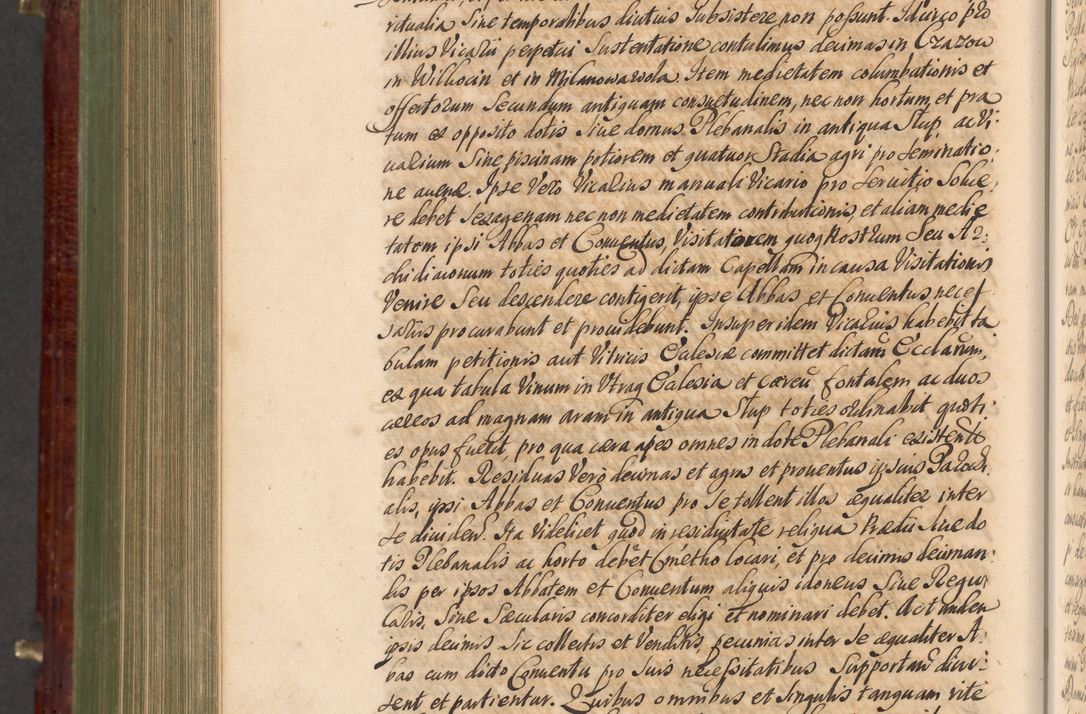 ritualia Sine temporalibus diutius Subsistere non possunt. Idcirco pro
illius Vicarii perpetui Sustentatione contulimus decimas in Czazow
in Wilkocin et in Milanowa wola Item medietatem columbationis et
offertorum Secundum antiquam consuetudinem, nec non hortum, et pra
tum ex opposito dotis Sive domus Plebanalis in antiqua Slup, ac Vi:
varium Sive piscinam potiorem et quatuor Stadia agri pro Seminatio:
ne avenæ. Ipse Vero Vicarius manuali Vicario pro Servitio Solve,
re debet Sexagenam nec non medietatem contributionis, et aliam medie
tatem ipsi Abbas et Conventus, Visitatorem quoq Nostrum Seu Ar:
chidiaconum toties quoties ad dictam Capellam in causa Visitationis
Venire Seu descendere contigerit, ipse Abbas et Conventus neces
sariis procurabunt et providebunt. Insuper idem Vicarius habebit ta
bulam petitionis aut Vitricis Ecclesiæ committet dictarū Ecclarum,
ex qua tabula Vinum in Utraq Ecclesia et cereū fontalem ac duos
cereos ad magnam aram in antiqua Slup toties ordinabit quoti:
es opus fuerit, pro qua cæra apes omnes in dote Plebanali existentes
habebit. Residuas Vero decimas et agros et proventus ipsius Paroch
alis, ipsi Abbas et Conventus pro Se tollent illos æqualiter inter
Se dividen. Ita Videlicet quod in residuitate reliqua Prædii Sive do
tis Plebanalis ac horto debet Cmetho locari, et pro decimis deciman:
dis per ipsos Abbatem et Conventum aliquis idoneus Sive Regu:
laris, Sive Sæcularis concorditer eligi et nominari debet. Ac tandem
ipsis decimis Sic collectis et Venditis, pecunias inter Se æqualiter A:
bas cum dicto Conventu pro Suis necessitatibus Supportand divi:
dent et partientur. Quibus omnibus et Singulis tanquam rite